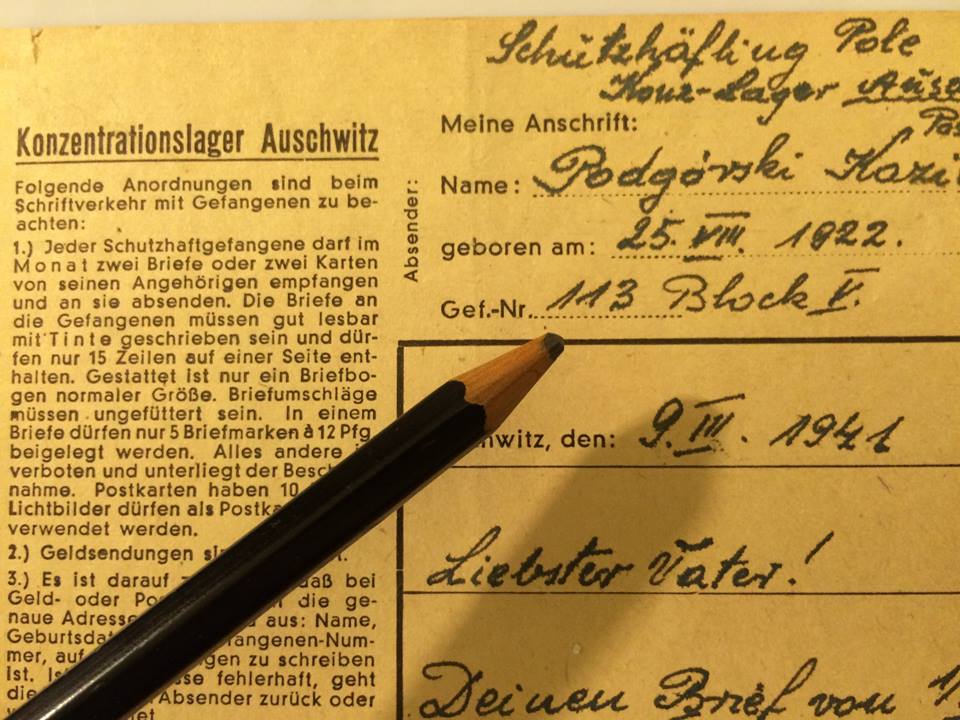 Schützhäfling Pole
Konz-Lager
Konzentrationslager Auschwitz
Folgende Anordnungen sind beim
Schriftverkehr mit Gefangenen zu be-
achten:
1.) Jeder Schutzhaftgefangene darf im
Monat zwei Briefe oder zwei Karten
von seinen Angehörigen empfangen
und an sie absenden. Die Briefe an
die Gefangenen müssen gut lesbar
mit Tinte geschrieben sein und dür-
fen nur 15 Zeilen auf einer Seite ent-
halten. Gestattet ist nur ein Briefbo-
gen normaler Größe. Briefumschläge
müssen ungefüttert sein. In einem
Briefe dürfen nur 5 Briefmarken à 12 Pfg
beigelegt werden. Alles andere
verboten und unterliegt der Besch
nahme. Postkarten haben 10
Lichtbilder dürfen als Postka
verwendet werden.
2.) Geldsendungen
3.) Es ist darauf daß bei
Geld- oder Po die ge-
naue Adresse aus: Name,
Geburtsda angenen-Num-
mer, auf gen zu schreiben
ist. fehlerhaft, geht
die Absender zurück oder
Absender:
Meine Anschrift:
Name: Podgórski Kazi
geboren am: 25. VIII. 1922.
Gef.-Nr. 113 Block V.
witz, den: 9. III. 1941
Liebster Vater!
Deinen Brief von